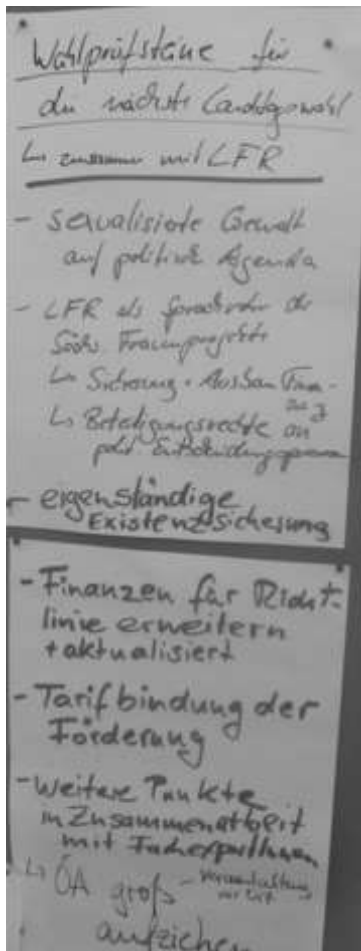 Wahlprüfsteine für
die nächste Landtagswahl
↳ zusammen mit LFR
- sexualisierte Gewalt
auf politische Agenda
- LFR als Sprachrohr der
Sächs. Frauenprojekte
↳ Sicherung + Ausbau Finanz
↳ Beteiligungsrechte an
polit Entscheidungsprozessen
- eigenständige
Existenzsicherung
- Finanzen für Richt-
linie erweitern
+ aktualisiert
- Tarifbindung der
Förderung
- weitere Punkte
in Zusammenarbeit
mit FachexpertInnen
↳ ÖA groß - Veranstaltung
vor Ort
aufziehen